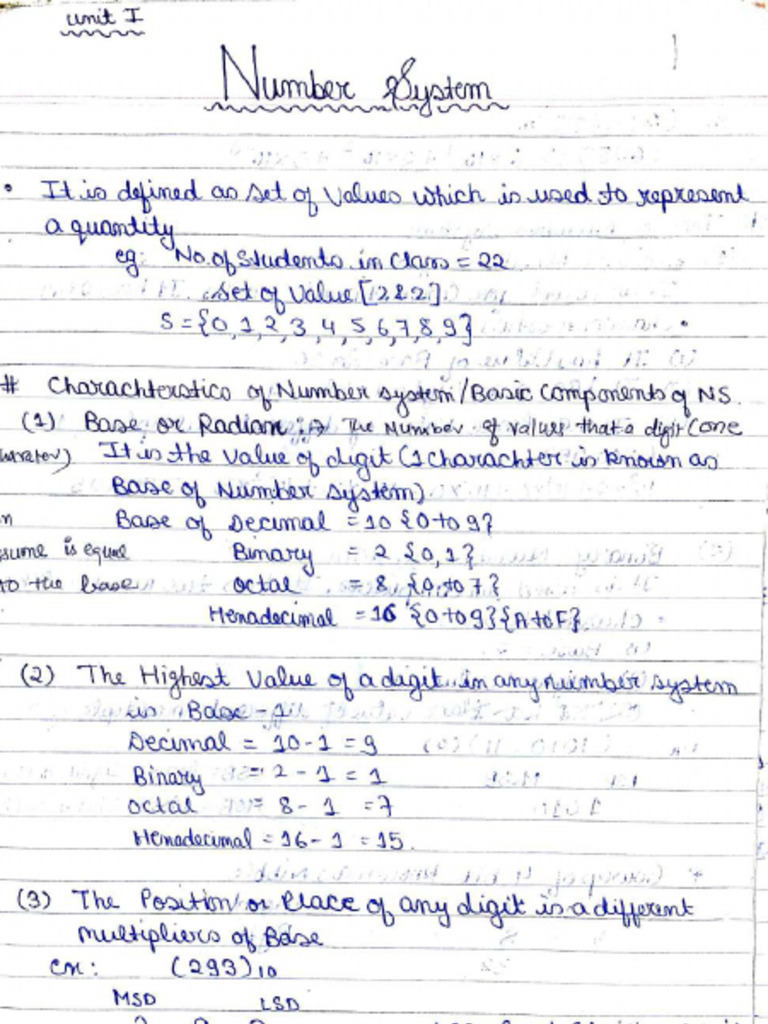 unit I
Number System
• It is defined as set of Values which is used to represent
a quantity
eg: No. of Students in Class = 22
Set of Value [2&2]
S = {0,1,2,3,4,5,6,7,8,9}
# Charachterstics of Number system/Basic Components of NS.
(1) Base or Radian :→ The Number of values that a digit (one
It is the value of digit (1 charachter is known as
Base of Number System)
Base of Decimal = 10 {0 to 9}
sume is equal Binary = 2 {0,1}
to the base Octal = 8 {0 to 7}
Hexadecimal = 16 {0 to 9}{A to F}
(2) The Highest Value of a digit in any number system
is Base - 1
Decimal = 10-1 = 9
Binary = 2 - 1 = 1
octal = 8 - 1 = 7
Hexadecimal = 16 - 1 = 15.
(3) The Position or Place of any digit is a different
multipliers of Base
ex: (293)10
MSD LSD